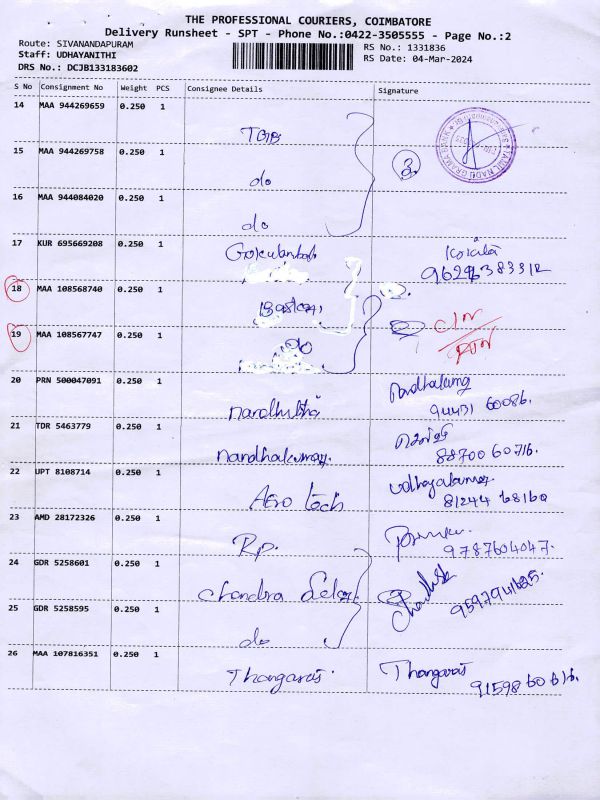 THE PROFESSIONAL COURIERS, COIMBATORE
Delivery Runsheet - SPT - Phone No.:0422-3505555 - Page No.:2
Route: SIVANANDAPURAM
Staff: UDHAYANITHI
DRS No.: DCJB133183602
RS No.: 1331836
RS Date: 04-Mar-2024
S No Consignment No Weight PCS Consignee Details Signature
14 MAA 944269659 0.250 1
TGB
15 MAA 944269758 0.250 1
do
3.
TAMIL NADU GRAMA BANK
16 MAA 944084020 0.250 1
do
17 KUR 695669208 0.250 1
Kokila
18 MAA 108568740 0.250 1
2.
19 MAA 108567747 0.250 1
do
20 PRN 500047091 0.250 1
94431 60086.
21 TDR 5463779 0.250 1
Nandhakumar.
88700 60716.
22 UPT 8108714 0.250 1
Aero tech
Udhayakumar
23 AMD 28172326 0.250 1
R.p.
9787604047.
24 GDR 5258601 0.250 1
Chandra
25 GDR 5258595 0.250 1
do
26 MAA 107816351 0.250 1
Thangaraj.
Thangaraj